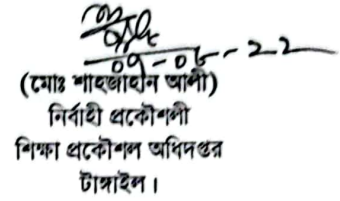 (মোঃ শাহজাহান আলী)
নির্বাহী প্রকৌশলী
শিক্ষা প্রকৌশল অধিদপ্তর
টাঙ্গাইল।